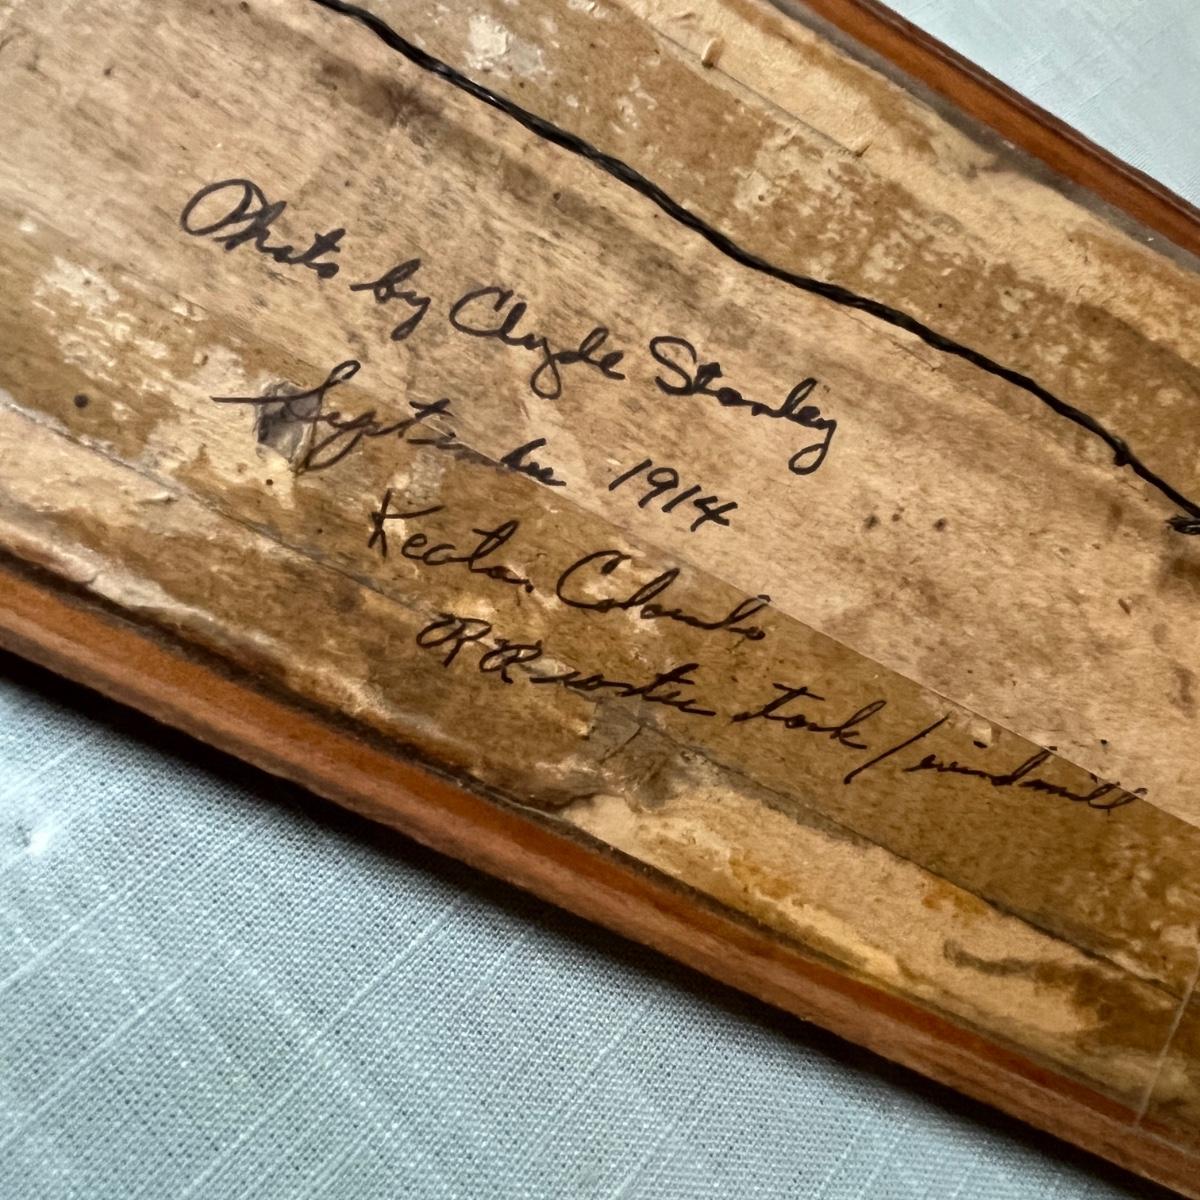 Photo by Clyde Stanley
September 1914
Keota, Colorado
RR water tank / windmill